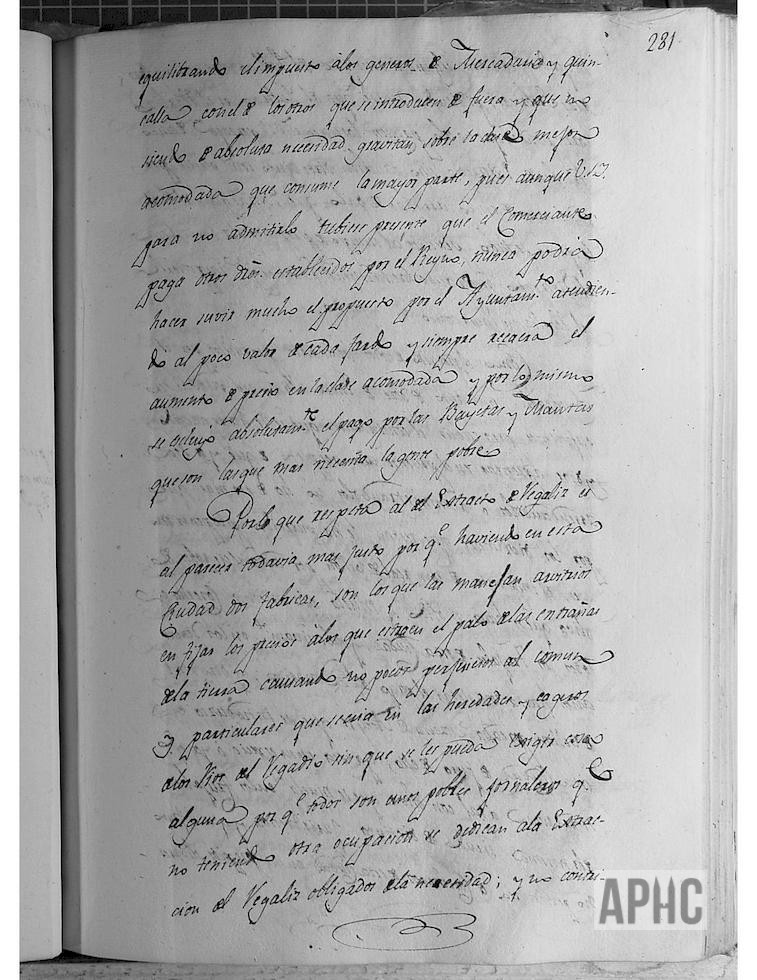 281
equilibrando el impuesto àlos generos de Mercadaria y quin-
calla con el de los otros que se introducen de fuera y que no
siendo de absoluta necesidad gravitan, sobre la clase mejor
acomodada que consume la mayor parte, pues aunque V.S.Y.
para no admitirlo tubiese presente que el Comerciante
paga otros dros. establecidos por el Reyno, nunca podria
hacer suvir mucho el propuesto por el Ayuntamto. atendien-
do al poco valor de cada fardo y siempre recaerà el
aumento de precio en la clase acomodada y por lo mismo
se escluyò absolutamte. el pago por las Bayetas y Mantas
que son las que mas necesita la gente pobre
Por lo que respeta al del Extracto de Regaliz es
al parecer todavia mas justo por qe. haviendo en esta
Ciudad dos fabricas, son los que las manejan arvitros
en fijar los precios àlos que estraen el palo de las entrañas
dela tierra causando no pocos perjuicios al comun
y particulares que se cria en las heredades y cageros
delos Rios del Regadio sin que se les pueda exigir cosa
alguna por qe. todos son unos pobres jornaleros qe.
no teniendo otra ocupacion se dedican ala Extrac-
cion del Regaliz obligados dela necesidad; y no
APHC